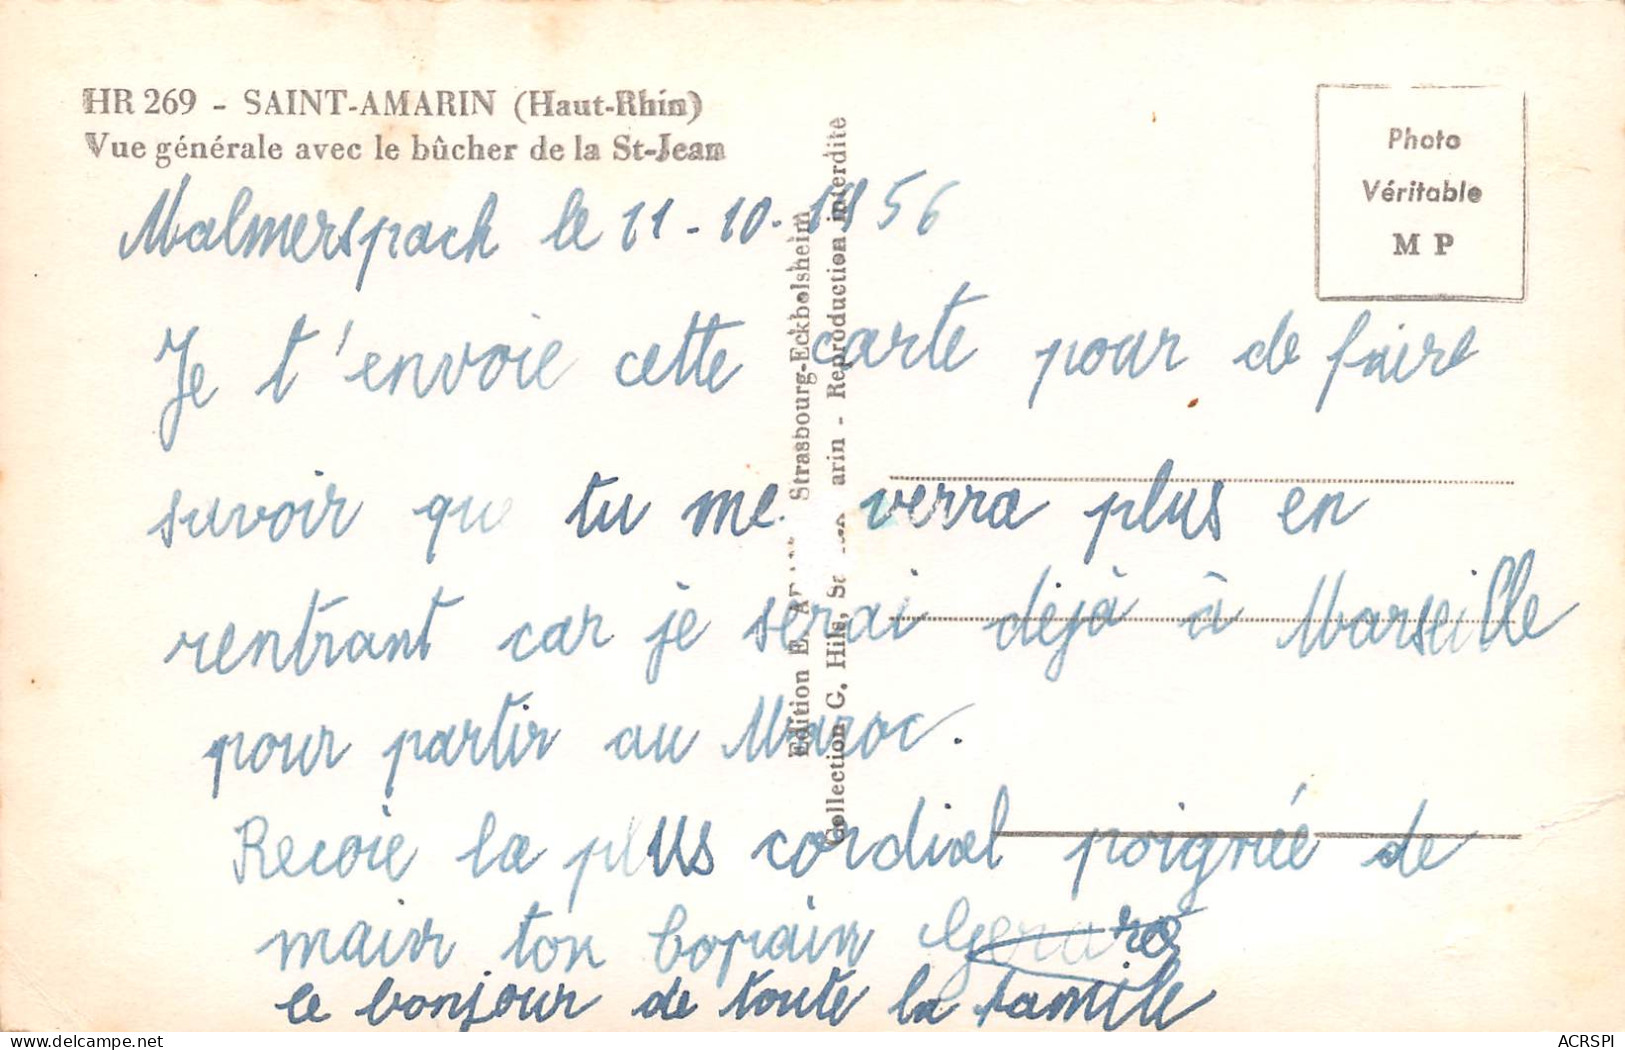 HR 269 - SAINT-AMARIN (Haut-Rhin)
Vue générale avec le bûcher de la St-Jean
Photo
Véritable
M P
Malmerspach le 11-10-1956
Je t'envoie cette carte pour de faire
savoir que tu me verra plus en
rentrant car je serai déjà à Marseille
pour partir au Maroc.
Recoie la plus cordial poignée de
main ton copain Gerard
le bonjour de toute la famile
Edition E. Strasbourg-Eckbolsheim
Collection G. Hils, Reproduction interdite
ACRSPI